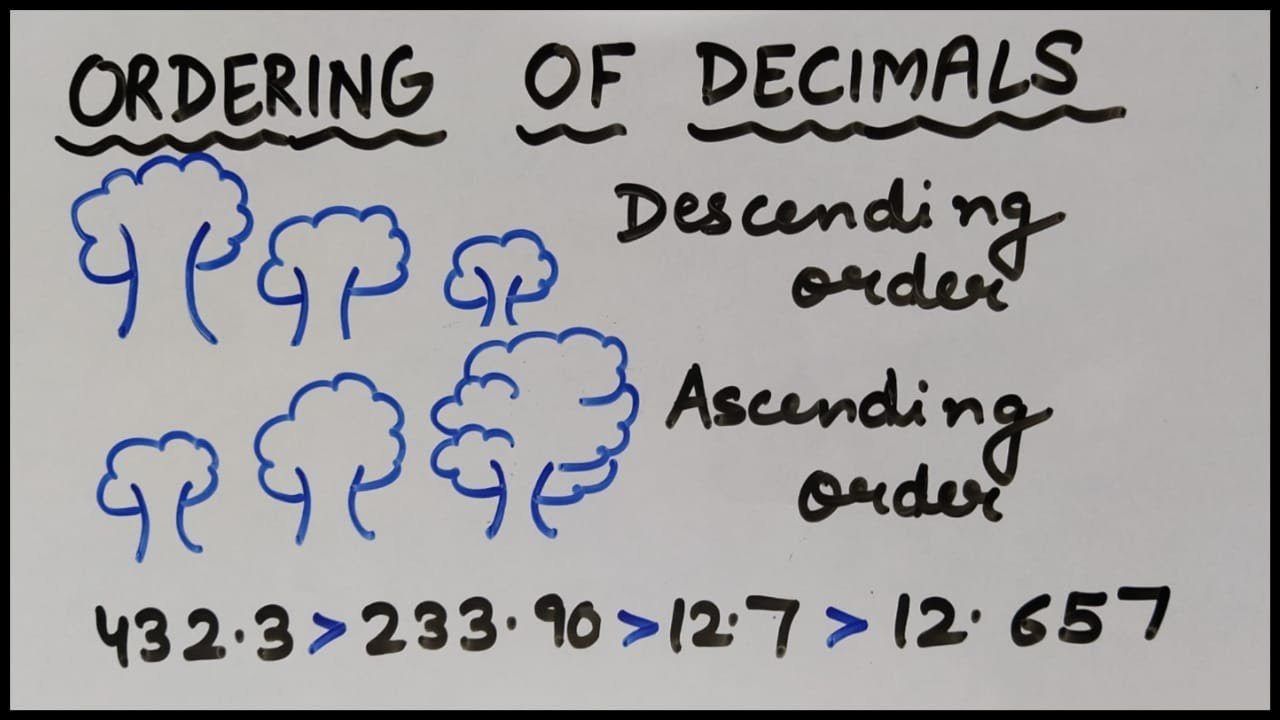 ORDERING OF DECIMALS
Descending
order
Ascending
order
432.3 > 233.90 > 12.7 > 12.657